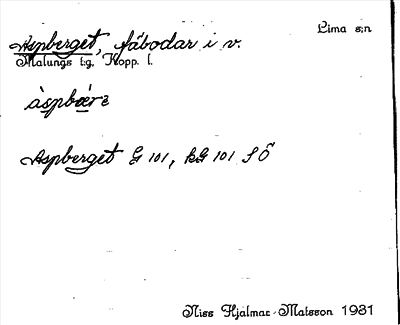 Lima s:n
Aspberget, fäbodar i v.
Malungs t:g, Kopp. l.
àspbæ̀rɛ
Aspberget G 101, kG 101 SÖ
Niss Hjalmar Matsson 1931